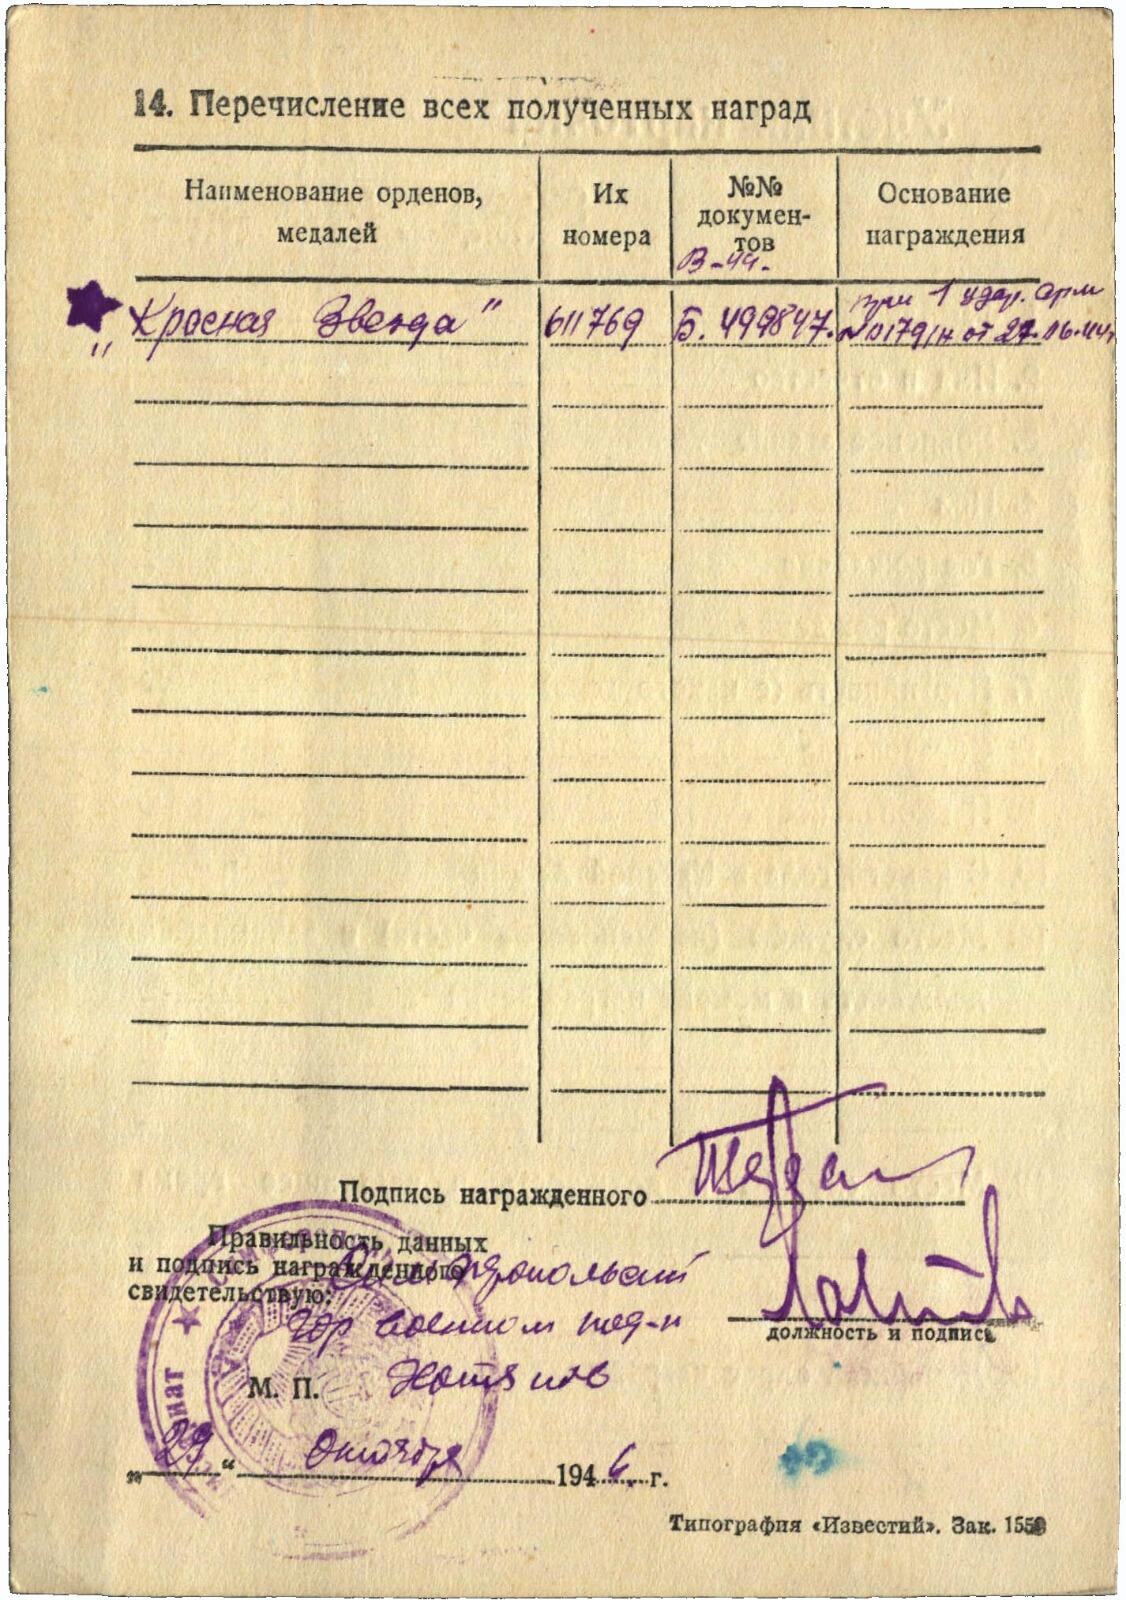 14. Перечисление всех полученных наград
Наименование орденов,
медалей
Их
номера
№№
докумен-
тов
В-44.
Основание
награждения
"Красная Звезда"
611769
Б. 499847.
1 удар. арм
№ 0179/н от
Подпись награжденного
Правильность данных
и подпись награжденного
свидетельствую:
гор военком под-к
должность и подпись
М. П.
„ 29 “ Октября 1946. г.
Типография «Известий». Зак. 1559